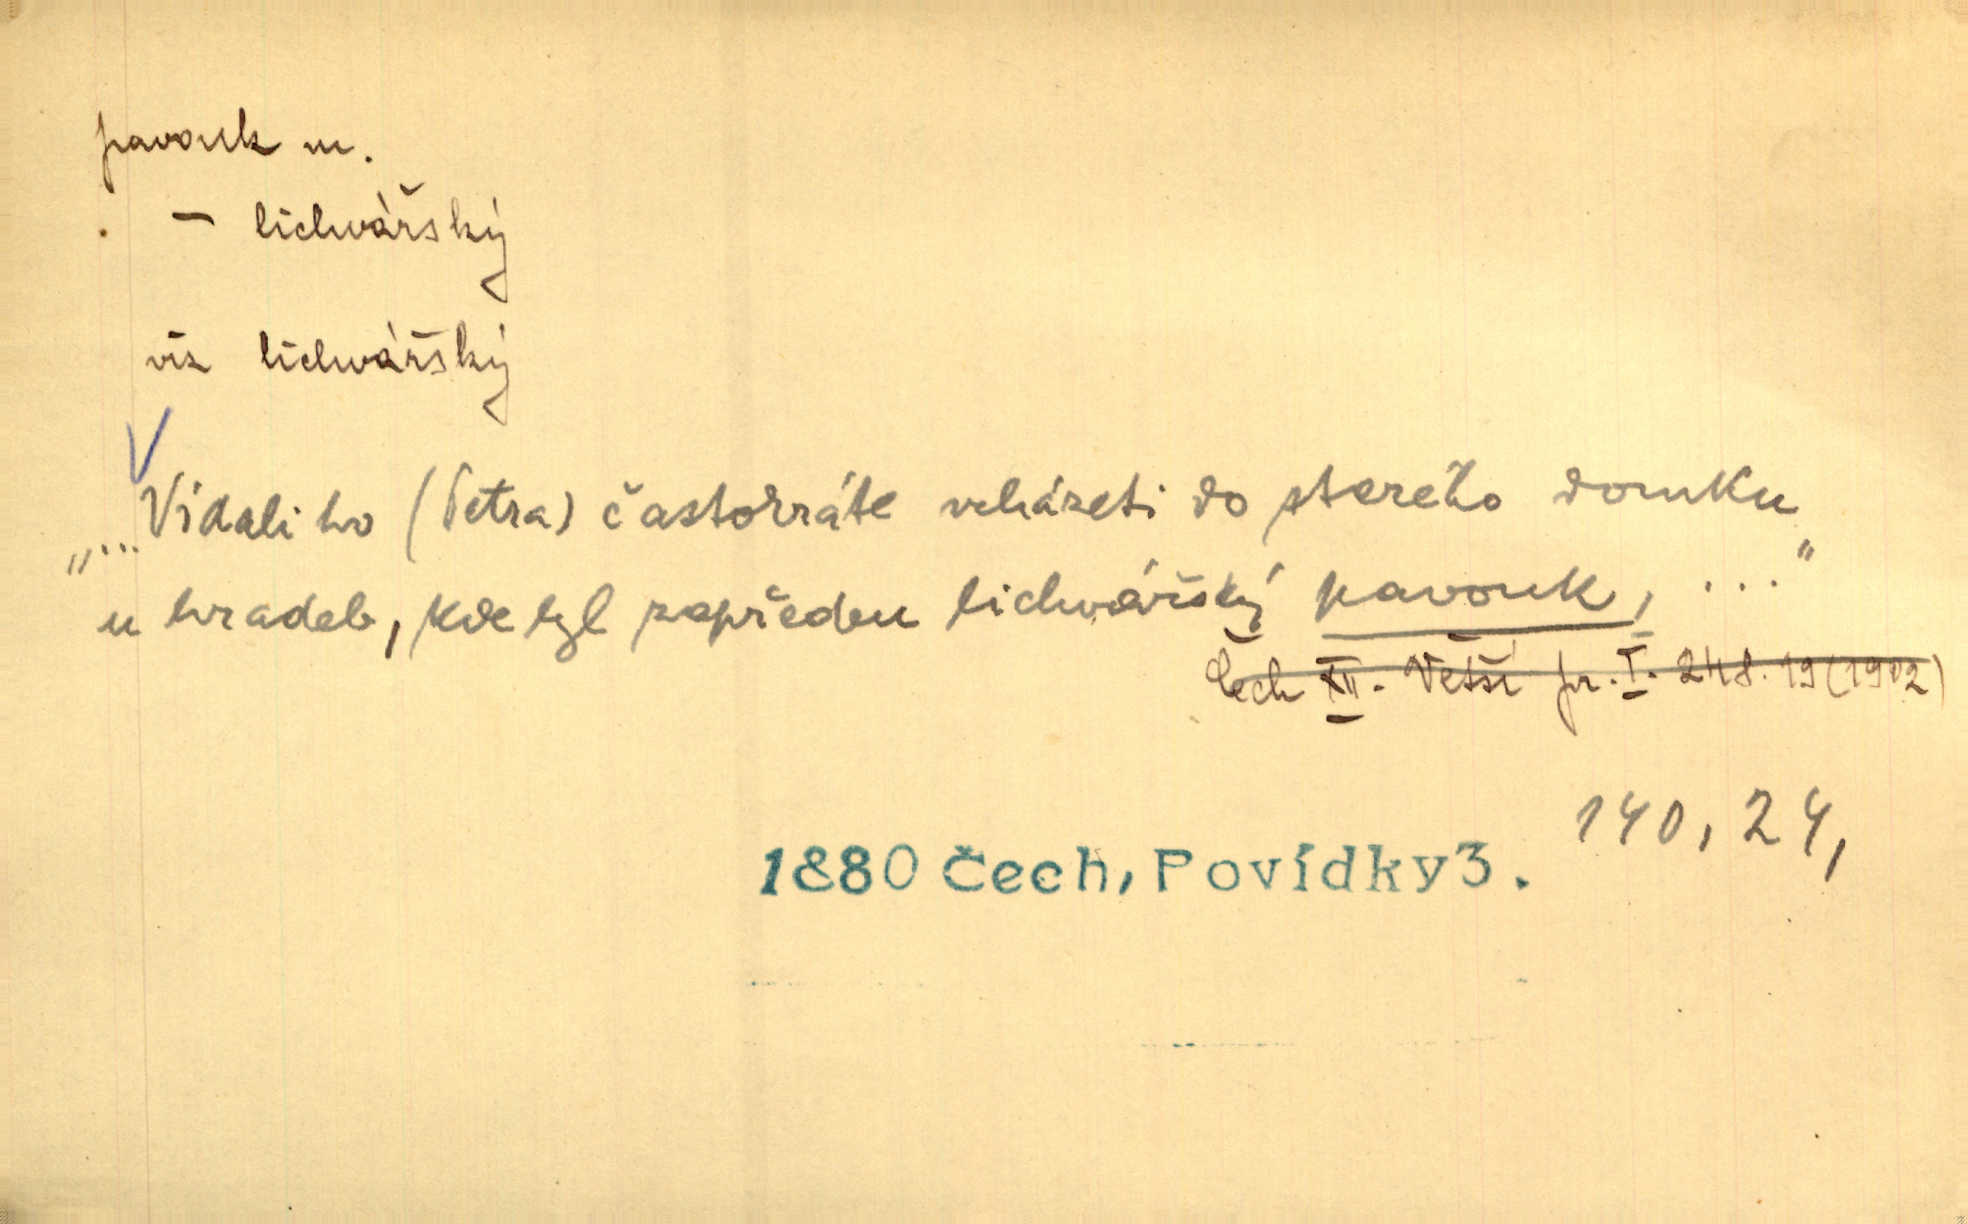 pavouk m.
– lichvářský
viz lichvářský
„... Vídali ho (Petra) častokráte vcházeti do starého domku
u hradeb, kde byl zapředen lichvářský pavouk, ..."
Čech XII. Větší pr. I. 248. 19 (1902)
140, 24,
1880 Čech, Povídky 3.